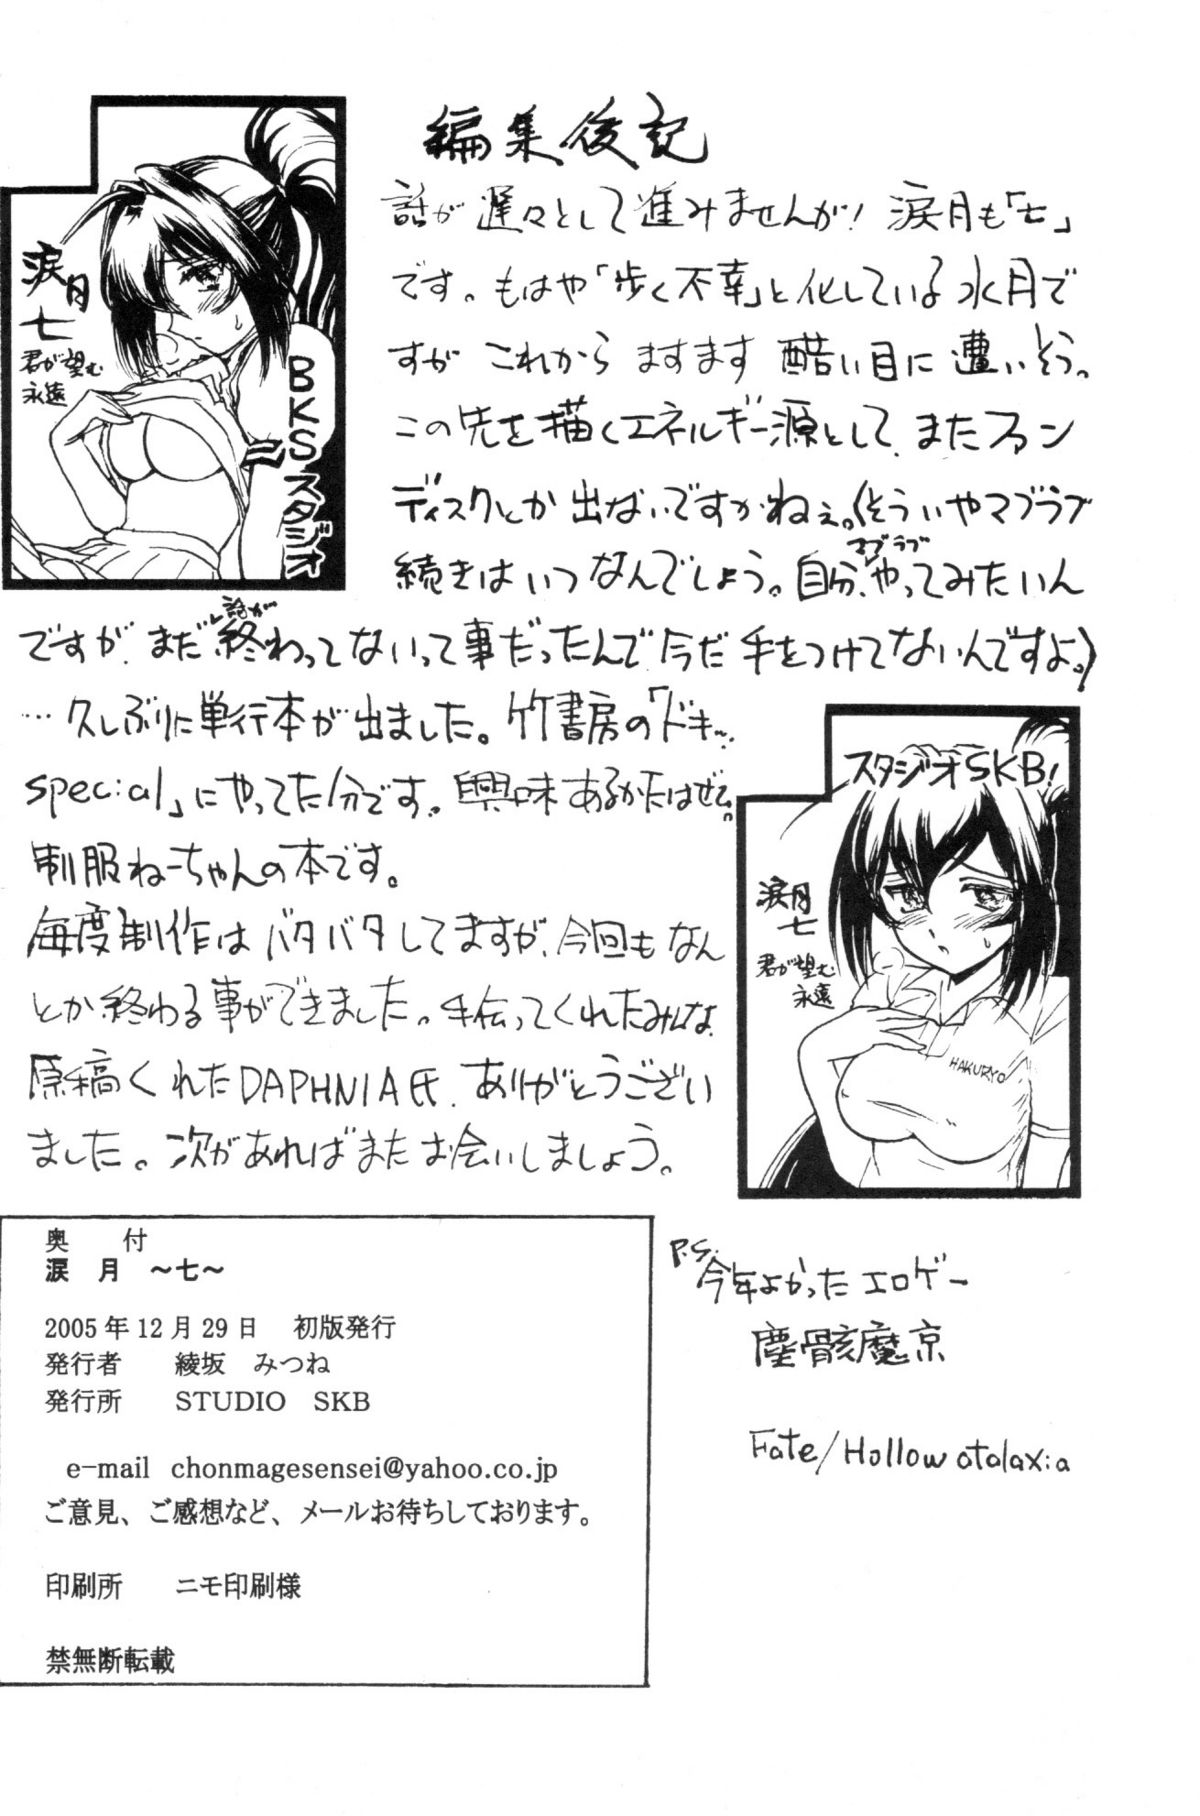 編集後記
話が遅々として進みませんが！涙月も「七」
です。もはや「歩く不幸」と化している水月で
すが これから ますます 酷い目に 遭いそう。
この先を描くエネルギー源として、またファン
ディスクとか 出ないですかねぇ。(そういやマブラブ
続きはいつなんでしょう。自分、マブラブやってみたいん
ですが、まだ話が終わってないって事だったんで今だ手をつけてないんですよ。)
…久しぶりに単行本が出ました。竹書房の「ドキッ
special」にやってた分です。興味あるかたはぜひ。
制服ねーちゃんの本です。
毎度制作はバタバタしてますが、今回もなん
とか終わる事ができました。手伝ってくれたみんな、
原稿くれたDAPHNIA氏、ありがとうござい
ました。次があればまたお会いしましょう。
涙月
七
君が望む
永遠
BKSスタジオ
スタジオSKB!
涙月
七
君が望む
永遠
HAKURYO
奥　付
涙　月　～七～
2005年12月29日　初版発行
発行者　綾坂　みつね
発行所　STUDIO　SKB
e-mail　chonmagesensei@yahoo.co.jp
ご意見、ご感想など、メールお待ちしております。
印刷所　ニモ印刷様
禁無断転載
P.S.
今年よかったエロゲー
塵骸魔京
Fate/Hollow atalaxia